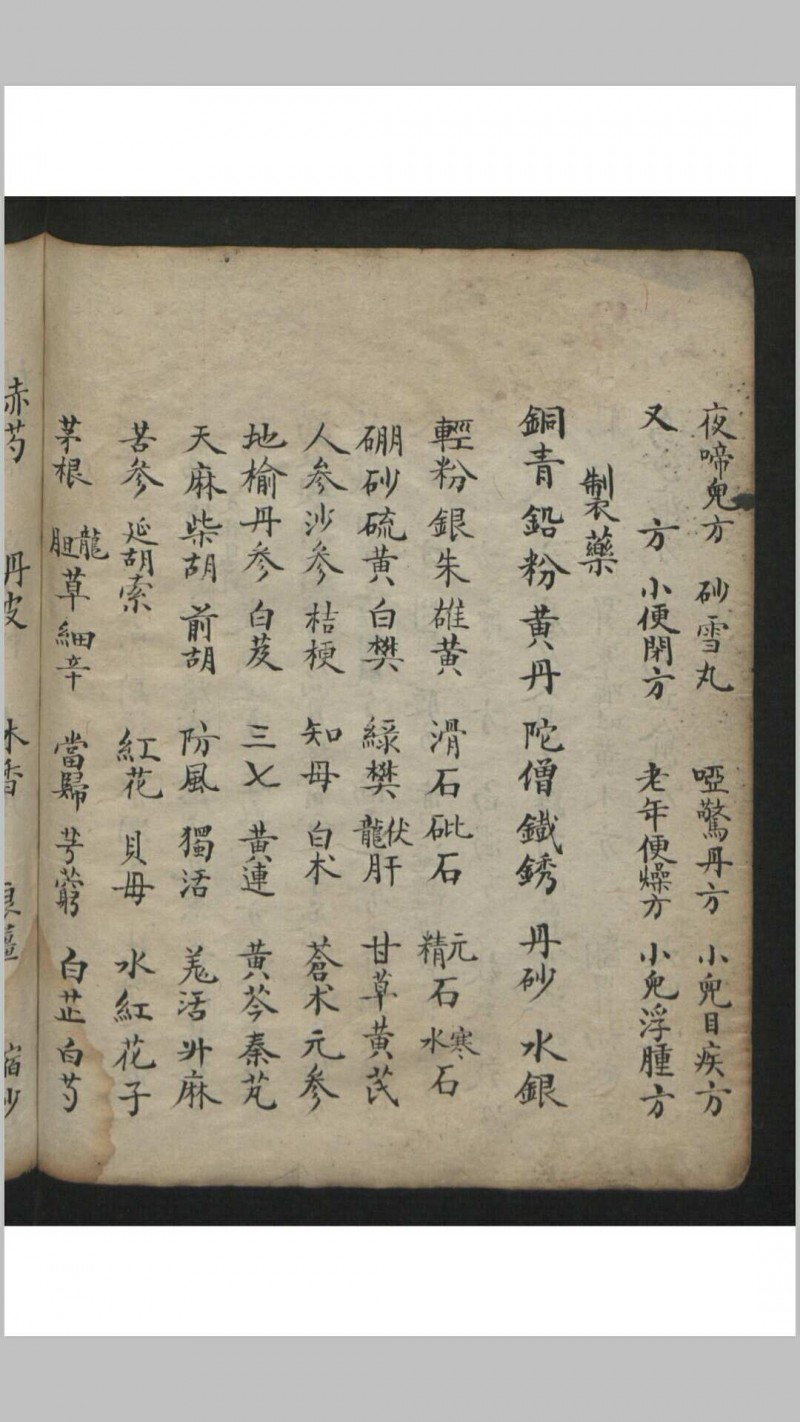 夜啼兒方 砂雪丸 啞驚丹方 小兒目疾方
又方 小便閉方 老年便燥方 小兒浮腫方
製藥
銅青 鉛粉 黄丹 陀僧 鐵銹 丹砂 水銀
輕粉 銀朱 雄黄 滑石 砒石 元精石 寒水石
硼砂 硫黄 白礬 綠礬 伏龍肝 甘草 黄芪
人参 沙参 桔梗 知母 白术 蒼术 元参
地榆 丹参 白芨 三七 黄連 黄芩 秦艽
天麻 柴胡 前胡 防風 獨活 羗活 升麻
苦参 延胡索 紅花 貝母 水紅花子
茅根 龍胆草 細辛 當歸 芎藭 白芷 白芍
赤芍 丹皮 木香 良薑 宿砂